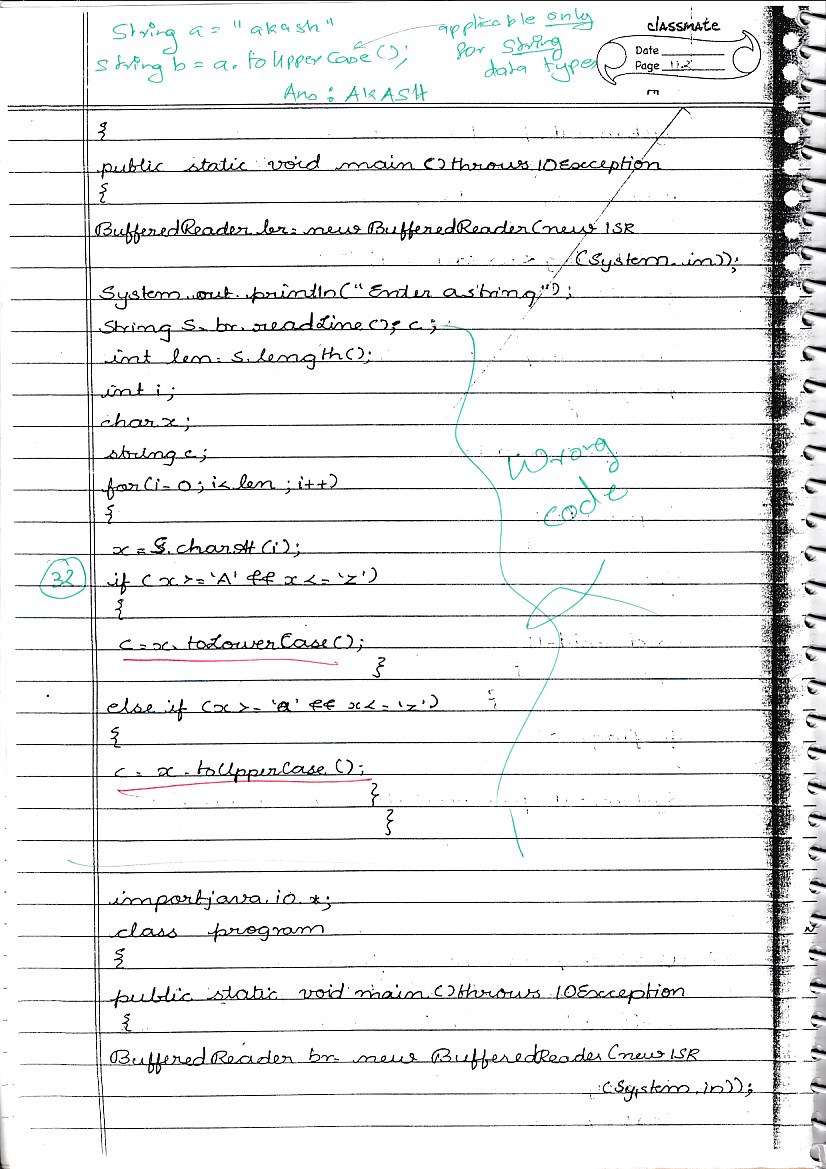 String a = "akash"
String b = a. toUpperCase();
Ans : AKASH
applicable only
for String
data types
classmate
Date
Page
{
public static void main () throws IOException
{
BufferedReader br= new BufferedReader (new ISR
(System. in));
System. out. println (" Enter a string ");
String S= br. readLine (); c ;
int len = s. length ();
int i ;
char x ;
string c ;
for (i=0 ; i< len ; i++)
{
x = S. charAt (i);
32
if ( x >= 'A' && x <= 'z')
{
c = x. toLowerCase ();
}
else if (x >= 'a' && x <= 'z')
{
c = x. toUpperCase ();
}
}
Wrong
code
import java. io. *;
class program
{
public static void main () throws IOException
{
BufferedReader br= new BufferedReader (new ISR
(System. in));